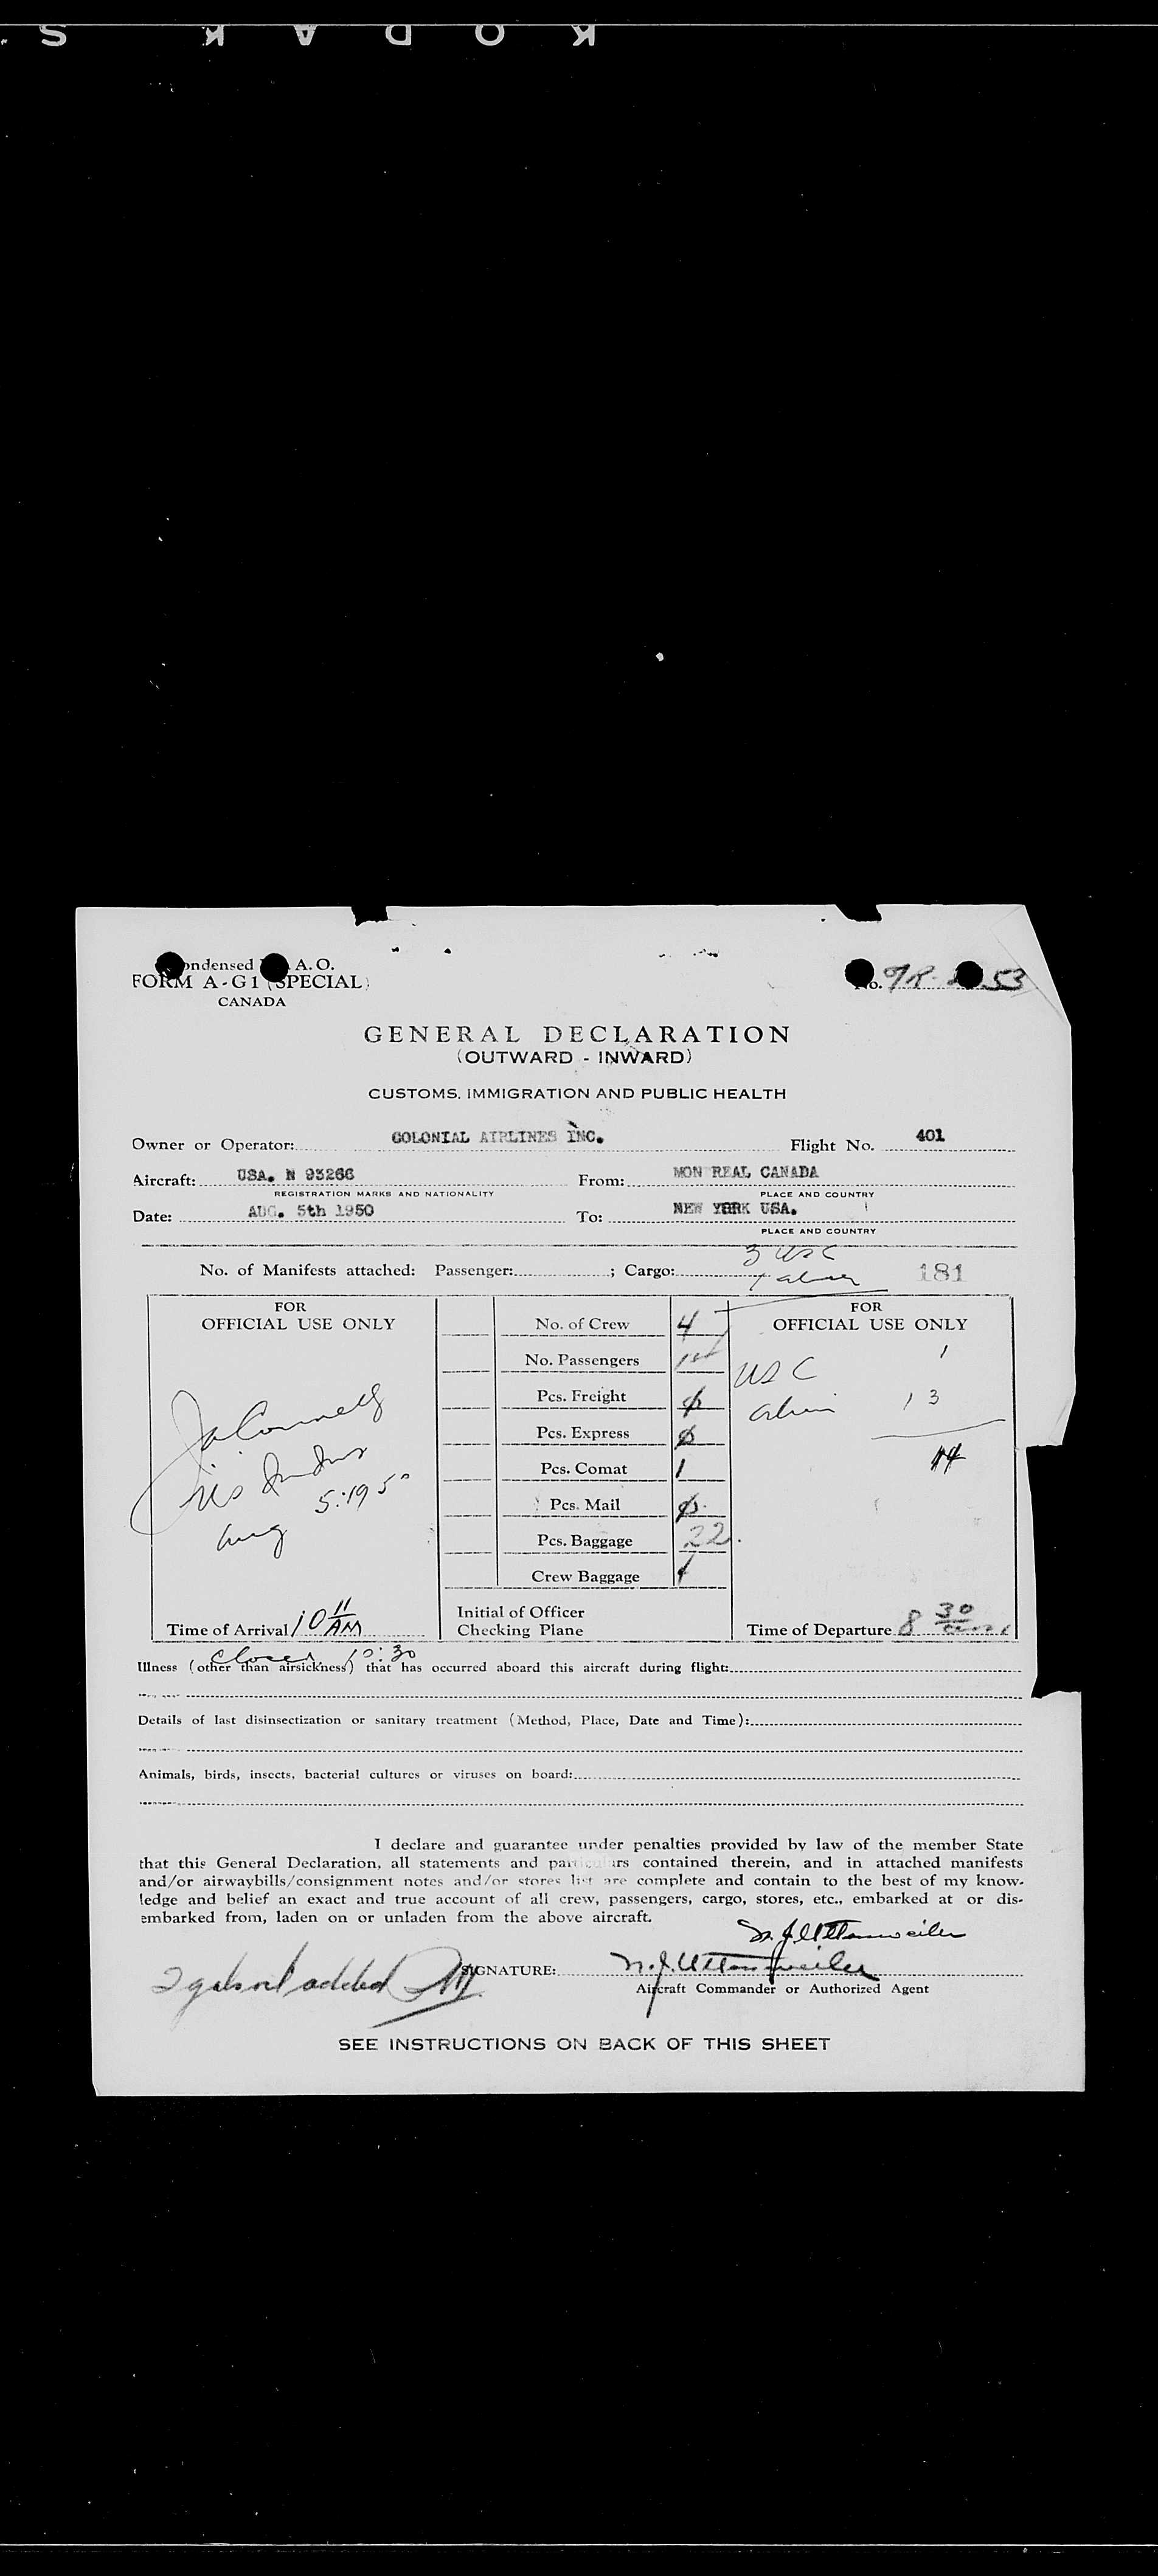 KODAK S
ondensed A. O.
FORM A-G1 (SPECIAL)
CANADA
No. 53
GENERAL DECLARATION
(OUTWARD - INWARD)
CUSTOMS, IMMIGRATION AND PUBLIC HEALTH
Owner or Operator: COLONIAL AIRLINES INC. Flight No. 401
Aircraft: USA. N 93266 From: MONTREAL CANADA
REGISTRATION MARKS AND NATIONALITY PLACE AND COUNTRY
Date: AUG. 5th 1950 To: NEW YORK USA.
PLACE AND COUNTRY
3 USC
No. of Manifests attached: Passenger: ; Cargo: 1 alien 181
FOR
OFFICIAL USE ONLY
No. of Crew 4
No. Passengers
Pcs. Freight ø
Pcs. Express ø
Pcs. Comat 1
Pcs. Mail ø
Pcs. Baggage 22
Crew Baggage
Initial of Officer
Checking Plane
FOR
OFFICIAL USE ONLY
USC 1
alien 13
14
Aug 5.1950
Time of Arrival 10 11 AM
Time of Departure 8 30
closed 10:30
Illness (other than airsickness) that has occurred aboard this aircraft during flight:
Details of last disinsectization or sanitary treatment (Method, Place, Date and Time):
Animals, birds, insects, bacterial cultures or viruses on board:
I declare and guarantee under penalties provided by law of the member State
that this General Declaration, all statements and particulars contained therein, and in attached manifests
and/or airwaybills/consignment notes and/or stores list are complete and contain to the best of my know-
ledge and belief an exact and true account of all crew, passengers, cargo, stores, etc., embarked at or dis-
embarked from, laden on or unladen from the above aircraft.
N. J. Uttenweiler
SIGNATURE: N. J. Uttenweiler
Aircraft Commander or Authorized Agent
added
SEE INSTRUCTIONS ON BACK OF THIS SHEET